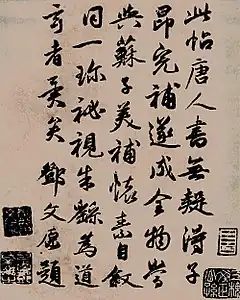 此帖唐人書無疑得子
昂完補遂成全物當
與蘇子美補懷素自叙
同一珍祕視朱繇為道
玄者異矣鄧文原題